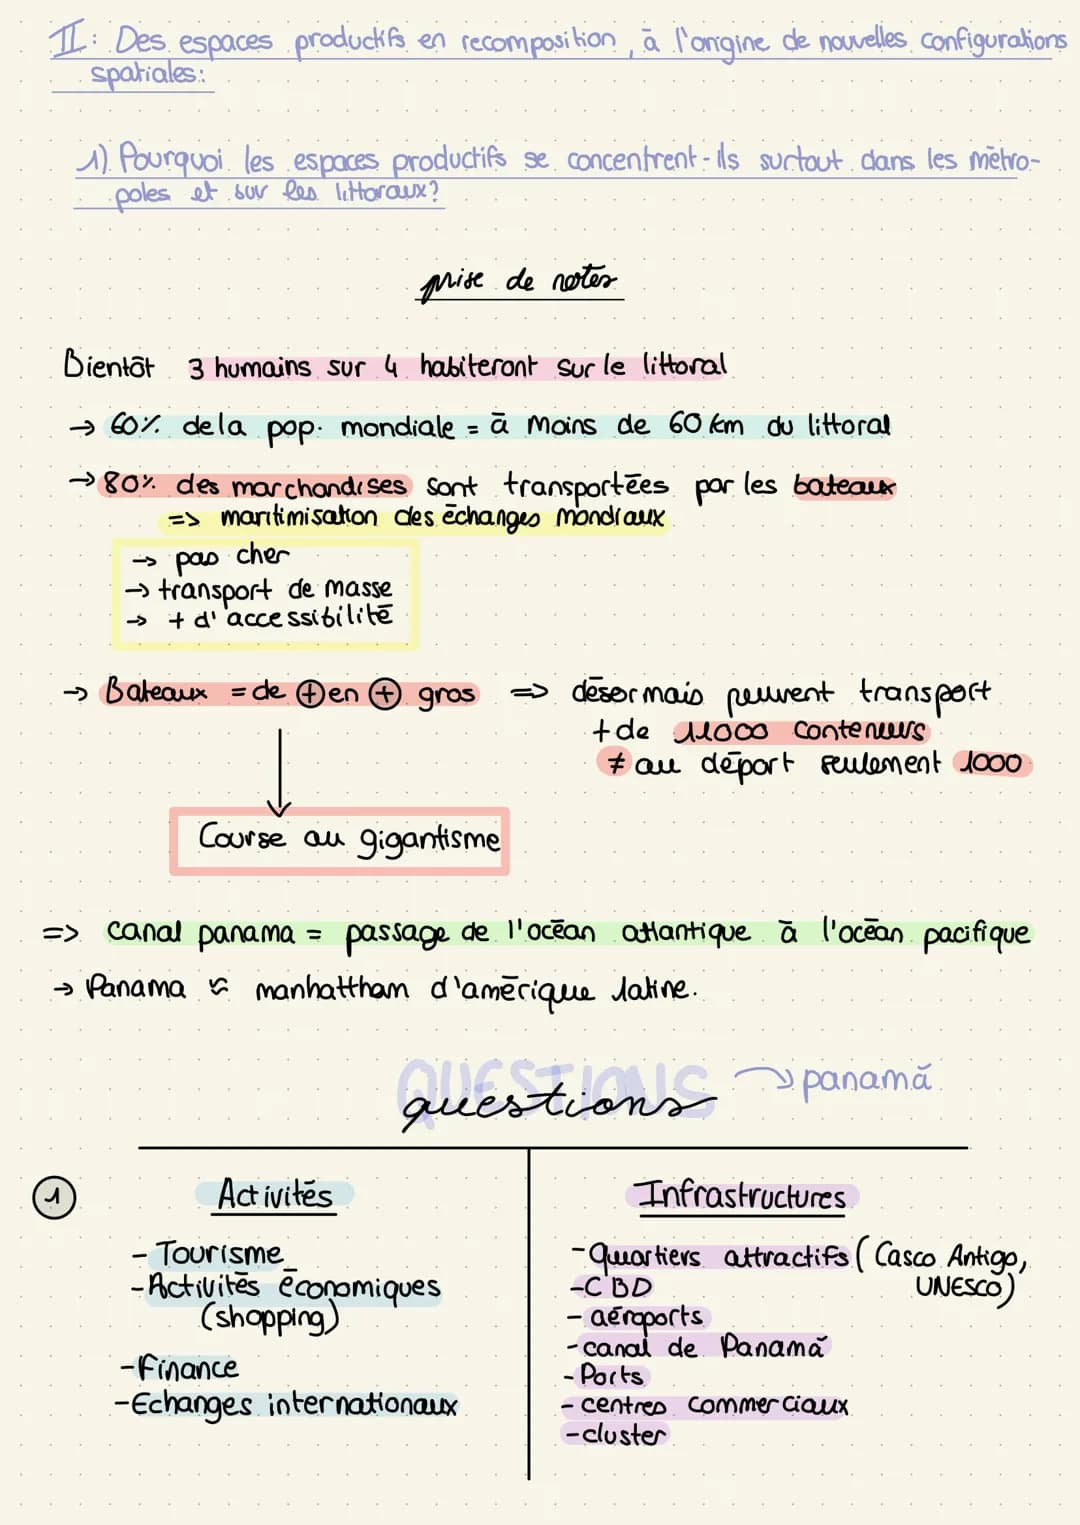 II: Des espaces productifs en recomposition, à l'origine de nouvelles configurations
spatiales:
1) Pourquoi les espaces productifs se concentrent-ils surtout dans les métro-
poles et sur les littoraux?
prise de notes
Bientôt 3 humains sur 4 habiteront sur le littoral
→ 60% de la pop. mondiale = à moins de 60 km du littoral
→ 80% des marchandises sont transportées par les bateaux
=> maritimisation des échanges mondiaux
→ pas cher
→ transport de masse
→ + d'accessibilité
→ Bateaux = de ⊕ en ⊕ gros => désormais peuvent transport
+ de 11000 conteneurs
≠ au départ seulement 1000
Course au gigantisme
=> canal panama = passage de l'océan atlantique à l'océan pacifique
→ Panama ≈ manhattham d'amérique latine.
QUESTIONS
questions → panamá
1
Activités
- Tourisme
- Activités économiques
(shopping)
- Finance
- Echanges internationaux
Infrastructures
- quartiers attractifs (Casco Antigo,
UNESCO)
- CBD
- aéroports
- canal de Panamá
- Ports
- centres commerciaux
- cluster